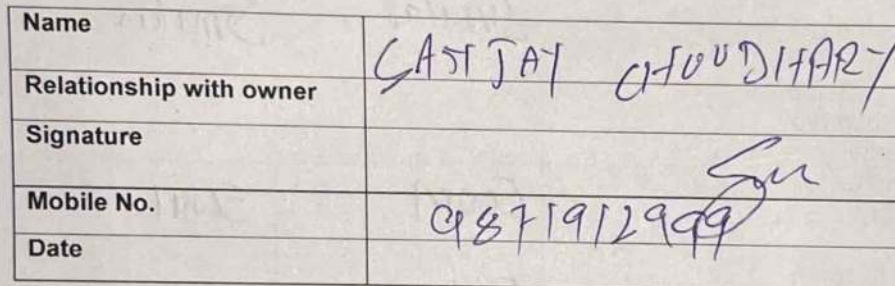 Name SANJAY CHOUDHARY
Relationship with owner
Signature
Mobile No. 9871912999
Date